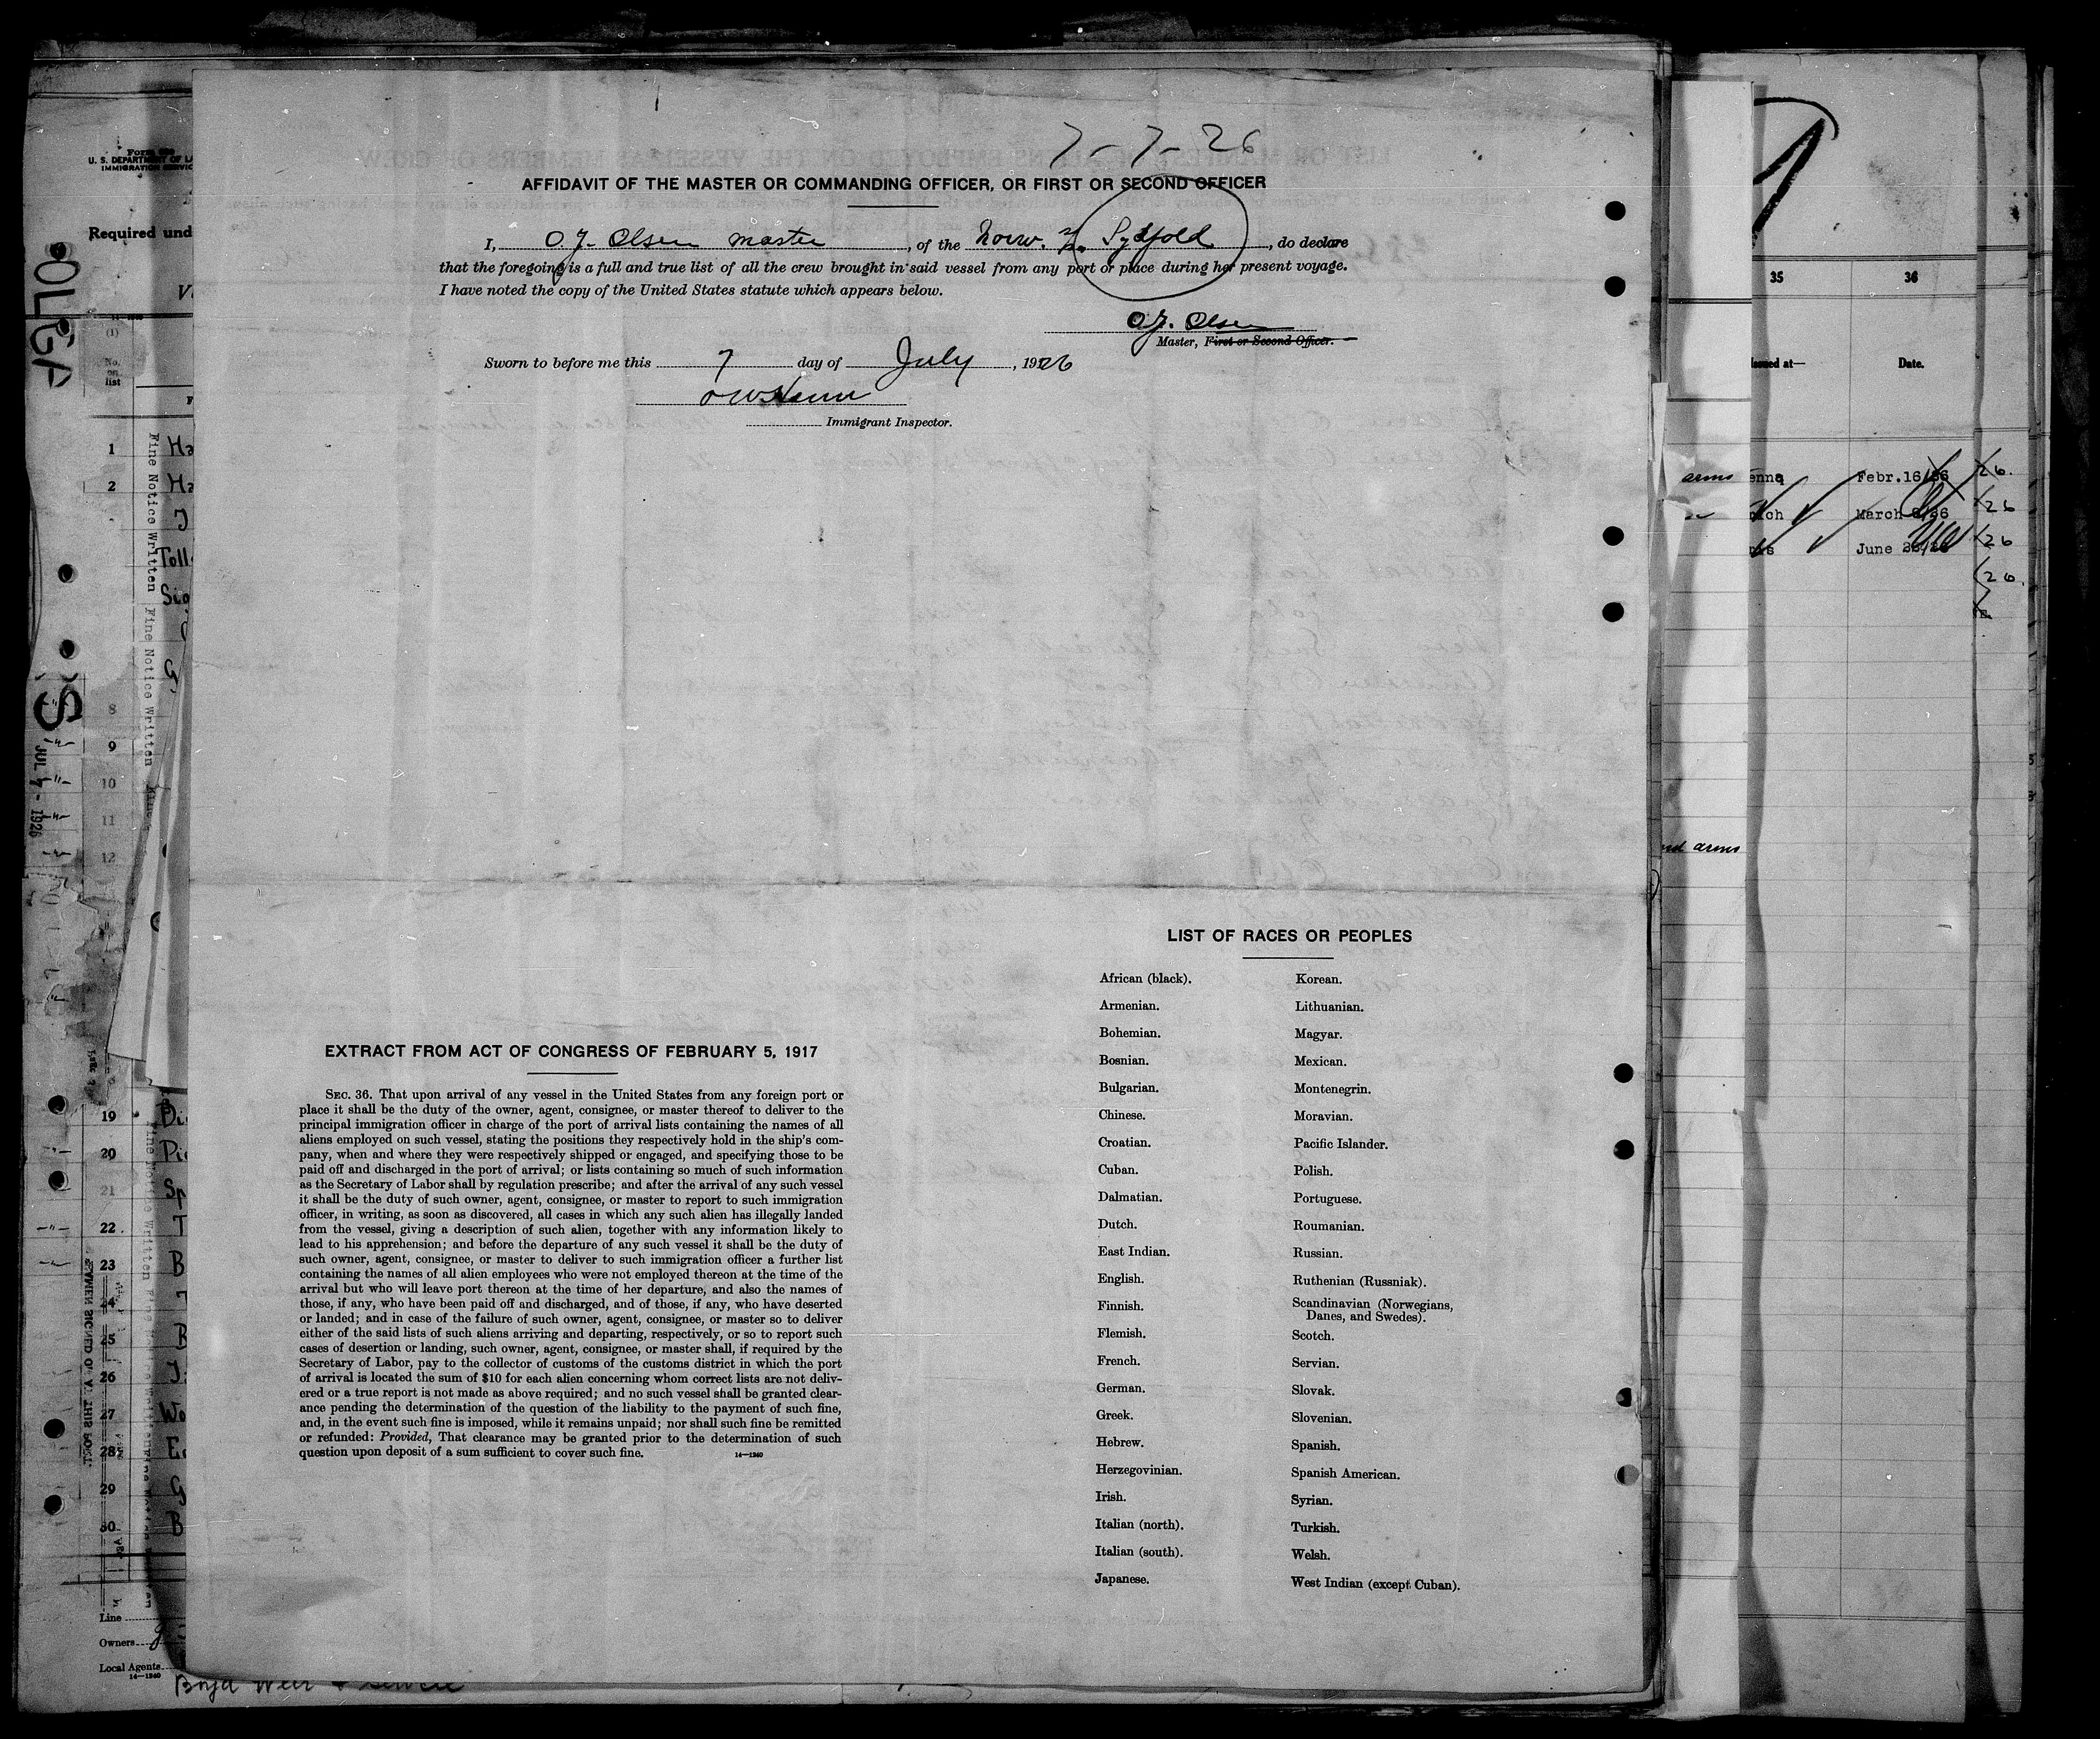 7-7-26
AFFIDAVIT OF THE MASTER OR COMMANDING OFFICER, OR FIRST OR SECOND OFFICER
I, O. J. Olsen master, of the Norw. Sydfold, do declare
that the foregoing is a full and true list of all the crew brought in said vessel from any port or place during her present voyage.
I have noted the copy of the United States statute which appears below.
O. J. Olsen
Master, First or Second Officer.
Sworn to before me this 7 day of July, 1926
Immigrant Inspector.
EXTRACT FROM ACT OF CONGRESS OF FEBRUARY 5, 1917
SEC. 36. That upon arrival of any vessel in the United States from any foreign port or
place it shall be the duty of the owner, agent, consignee, or master thereof to deliver to the
principal immigration officer in charge of the port of arrival lists containing the names of all
aliens employed on such vessel, stating the positions they respectively hold in the ship's com-
pany, when and where they were respectively shipped or engaged, and specifying those to be
paid off and discharged in the port of arrival; or lists containing so much of such information
as the Secretary of Labor shall by regulation prescribe; and after the arrival of any such vessel
it shall be the duty of such owner, agent, consignee, or master to report to such immigration
officer, in writing, as soon as discovered, all cases in which any such alien has illegally landed
from the vessel, giving a description of such alien, together with any information likely to
lead to his apprehension; and before the departure of any such vessel it shall be the duty of
such owner, agent, consignee, or master to deliver to such immigration officer a further list
containing the names of all alien employees who were not employed thereon at the time of the
arrival but who will leave port thereon at the time of her departure, and also the names of
those, if any, who have been paid off and discharged, and of those, if any, who have deserted
or landed; and in case of the failure of such owner, agent, consignee, or master so to deliver
either of the said lists of such aliens arriving and departing, respectively, or so to report such
cases of desertion or landing, such owner, agent, consignee, or master shall, if required by the
Secretary of Labor, pay to the collector of customs of the customs district in which the port
of arrival is located the sum of $10 for each alien concerning whom correct lists are not deliv-
ered or a true report is not made as above required; and no such vessel shall be granted clear-
ance pending the determination of the question of the liability to the payment of such fine,
and, in the event such fine is imposed, while it remains unpaid; nor shall such fine be remitted
or refunded: Provided, That clearance may be granted prior to the determination of such
question upon deposit of a sum sufficient to cover such fine. 14—1240
LIST OF RACES OR PEOPLES
African (black).
Armenian.
Bohemian.
Bosnian.
Bulgarian.
Chinese.
Croatian.
Cuban.
Dalmatian.
Dutch.
East Indian.
English.
Finnish.
Flemish.
French.
German.
Greek.
Hebrew.
Herzegovinian.
Irish.
Italian (north).
Italian (south).
Japanese.
Korean.
Lithuanian.
Magyar.
Mexican.
Montenegrin.
Moravian.
Pacific Islander.
Polish.
Portuguese.
Roumanian.
Russian.
Ruthenian (Russniak).
Scandinavian (Norwegians,
Danes, and Swedes).
Scotch.
Servian.
Slovak.
Slovenian.
Spanish.
Spanish American.
Syrian.
Turkish.
Welsh.
West Indian (except Cuban).
Required und
No.
on
list
1
2
8
9
10
11
12
19
20
21
22
23
24
25
26
27
28
29
30
Line
Owners
Local Agents
14—1240
OLGA
S
JUL 7 - 1926
Fine Notice Written Fine Notice Written
35
36
Date.
arms
Febr.16/26
March
June
and arms